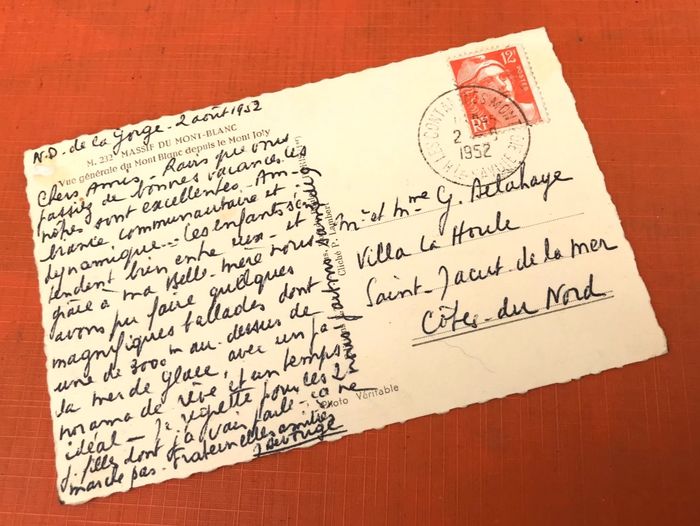 N.D. de la Gorge - 2 août 1952
M. 212 - MASSIF DU MONT-BLANC
Vue générale du Mont Blanc depuis le Mont Joly
Chers Amis - Ravis que vous
passiez de bonnes vacances, les
nôtres sont excellentes - Am-
biance communautaire et
dynamique - Les enfants s'
tendent bien entre eux - et
grâce à ma Belle-mère nous
avons pu faire quelques
magnifiques ballades dont
une de 3000m au-dessus de
la mer de glace, avec un pa-
norama de rêve, et un temps
idéal - Je regrette pour les 2
j. filles dont j'avais parlé - ça ne
marche pas - Fraternelles amitiés
Cliché P. Lambert
Photo Véritable
12F
POSTES
RF
LES CONTAMINES MONTJOIE
HTE SAVOIE
1952
Mr et Mme G. Delahaye
Villa La Houle
Saint-Jacut de la mer
Côtes-du-Nord